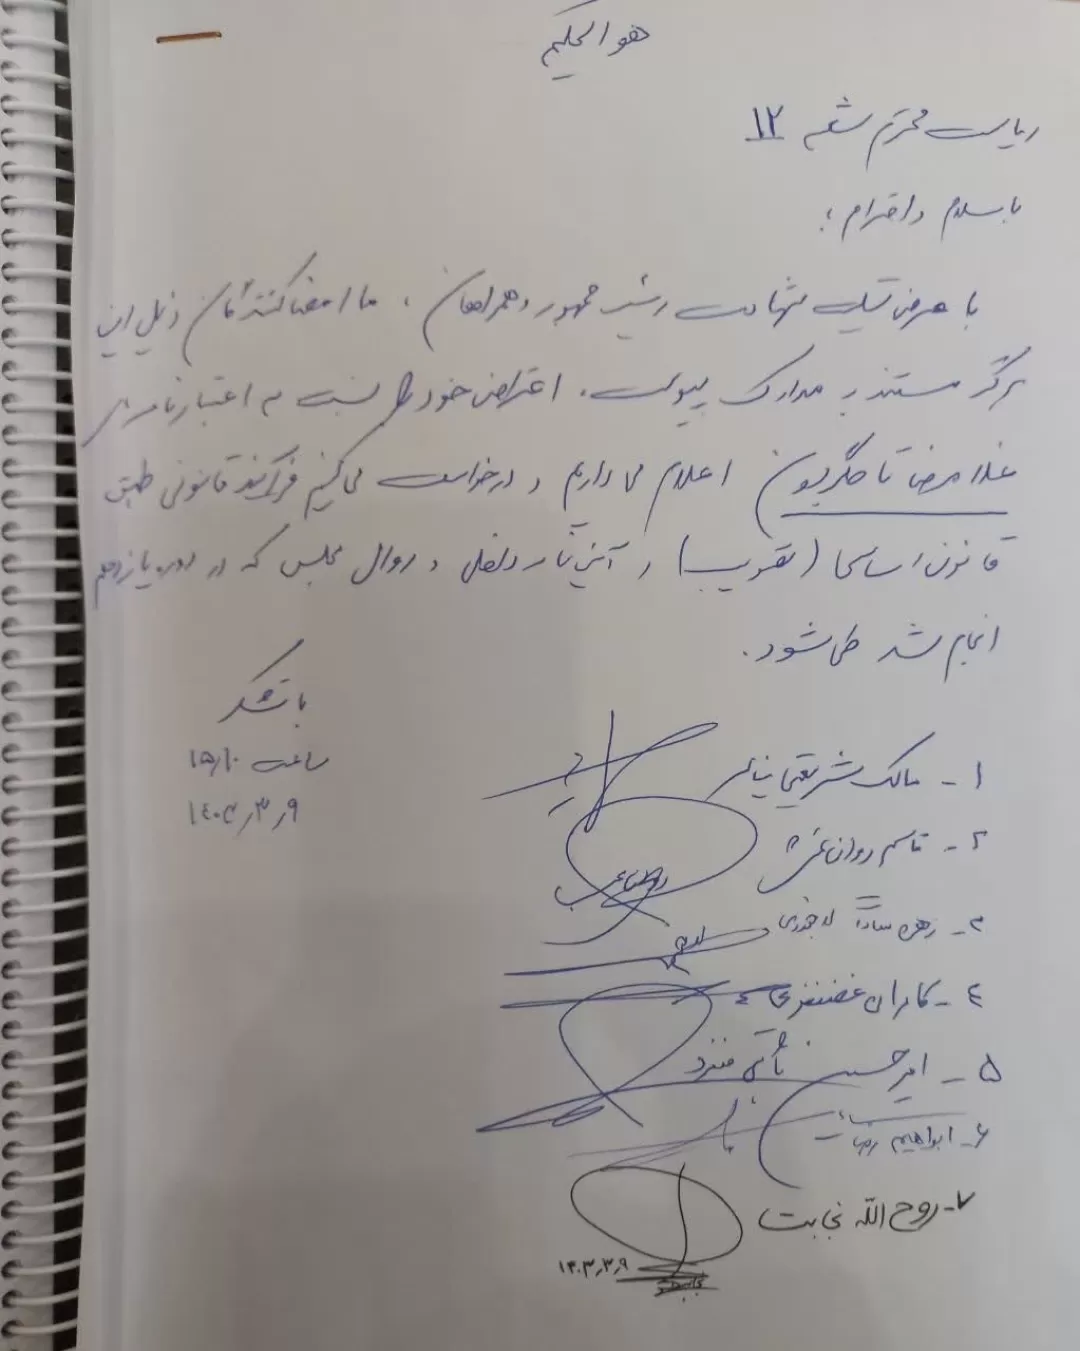 هو الحکیم
ریاست محترم شعبه ۱۲
با سلام و احترام؛
با عرض تسلیت شهادت رئیس جمهور و همراهان، ما امضا کنندگان ذیل این
برگه مستند به مدارک پیوست، اعتراض خود را نسبت به اعتبارنامه
غلامرضا تاجگردون اعلام می داریم و درخواست می کنیم فرآیند قانونی طبق
قانون اساسی و آئین نامه داخلی و روال مجلس که در دوره یازدهم
انجام شد طی شود.
با تشکر
ساعت ۱۵/۱۰
۱۴۰۳/۳/۹
۱- مالک شریعتی نیاسر
۲- قاسم روانبخش
۳- زهره سادات لاجوردی
۴- کامران غضنفری
۵- امیرحسین ثابتی منفرد
۶- ابراهیم رضائی
۷- روح الله نجابت
۱۴۰۳/۳/۹